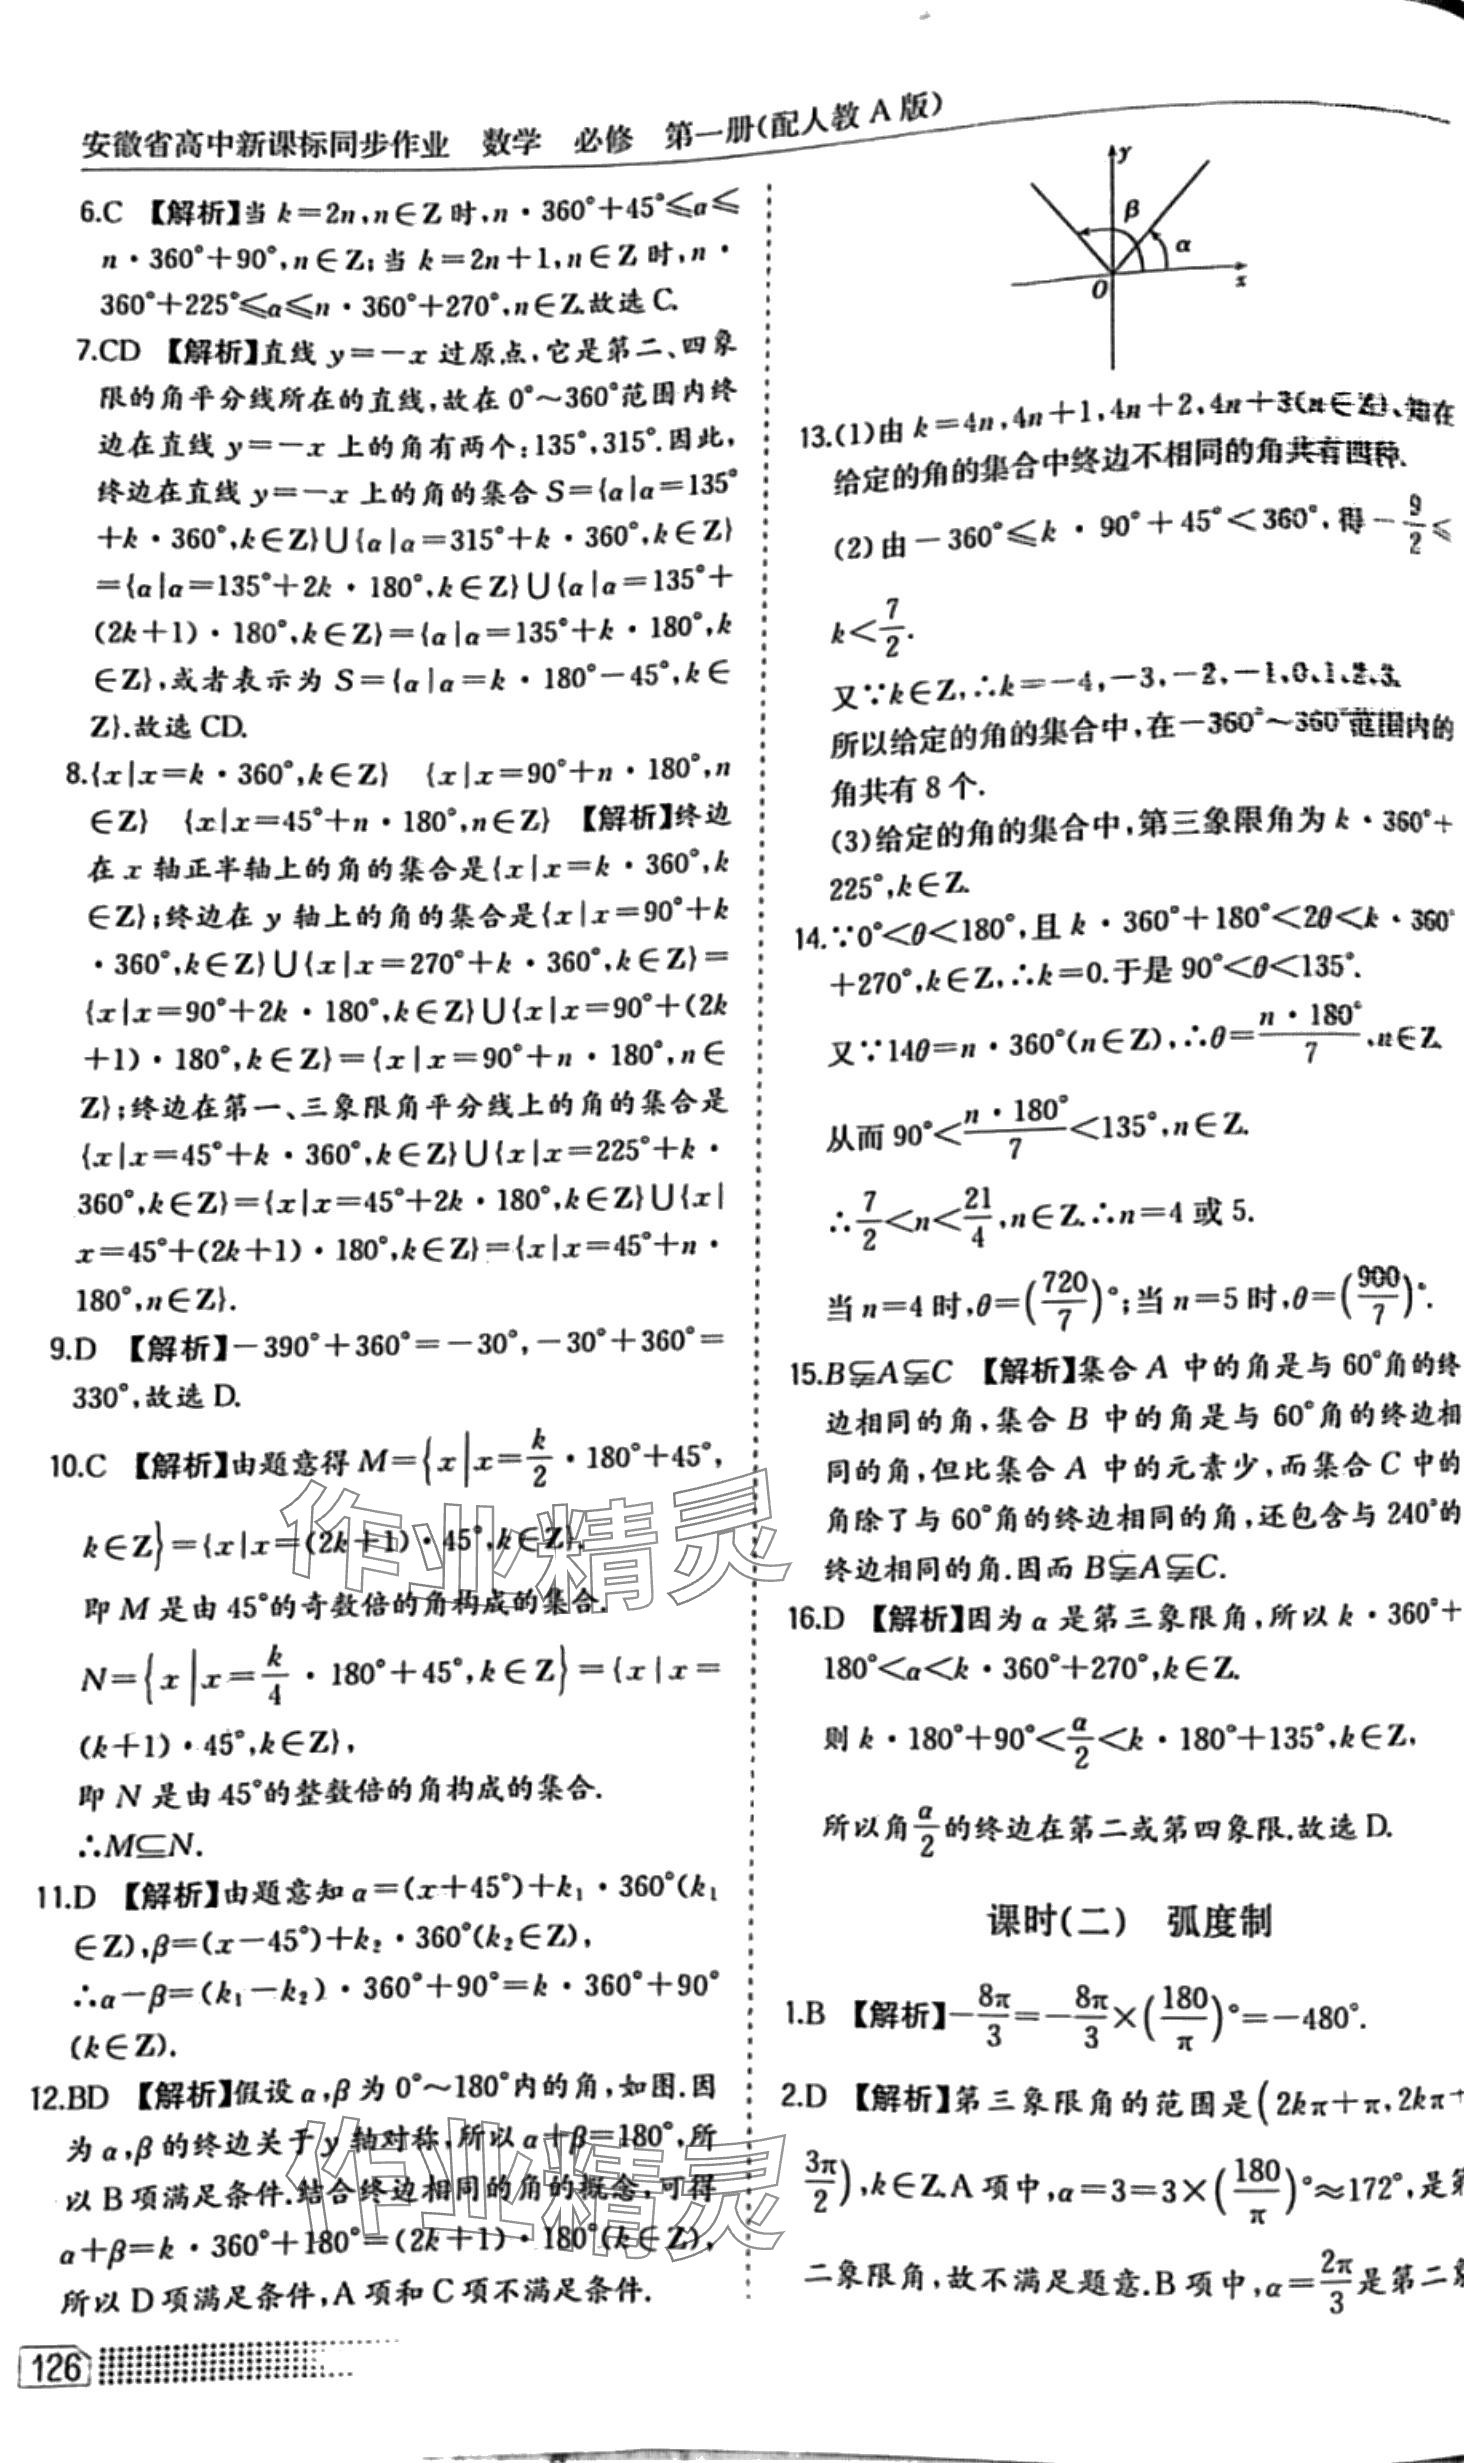 安徽省高中新课标同步作业 数学 必修 第一册(配人教 A 版)
6.C 【解析】当 k=2n,n∈Z 时,n·360°+45°≤α≤
n·360°+90°,n∈Z;当 k=2n+1,n∈Z 时,n·
360°+225°≤α≤n·360°+270°,n∈Z.故选 C.
7.CD 【解析】直线 y=-x 过原点,它是第二、四象
限的角平分线所在的直线,故在 0°~360°范围内终
边在直线 y=-x 上的角有两个:135°,315°.因此,
终边在直线 y=-x 上的角的集合 S={α|α=135°
+k·360°,k∈Z}∪{α|α=315°+k·360°,k∈Z}
={α|α=135°+2k·180°,k∈Z}∪{α|α=135°+
(2k+1)·180°,k∈Z}={α|α=135°+k·180°,k
∈Z},或者表示为 S={α|α=k·180°-45°,k∈
Z}.故选 CD.
8.{x|x=k·360°,k∈Z} {x|x=90°+n·180°,n
∈Z} {x|x=45°+n·180°,n∈Z} 【解析】终边
在 x 轴正半轴上的角的集合是{x|x=k·360°,k
∈Z};终边在 y 轴上的角的集合是{x|x=90°+k
·360°,k∈Z}∪{x|x=270°+k·360°,k∈Z}=
{x|x=90°+2k·180°,k∈Z}∪{x|x=90°+(2k
+1)·180°,k∈Z}={x|x=90°+n·180°,n∈
Z};终边在第一、三象限角平分线上的角的集合是
{x|x=45°+k·360°,k∈Z}∪{x|x=225°+k·
360°,k∈Z}={x|x=45°+2k·180°,k∈Z}∪{x|
x=45°+(2k+1)·180°,k∈Z}={x|x=45°+n·
180°,n∈Z}.
9.D 【解析】-390°+360°=-30°,-30°+360°=
330°,故选 D.
10.C 【解析】由题意得 M={x|x=k/2·180°+45°,
k∈Z}={x|x=(2k+1)·45°,k∈Z},
即 M 是由 45°的奇数倍的角构成的集合.
N={x|x=k/4·180°+45°,k∈Z}={x|x=
(k+1)·45°,k∈Z},
即 N 是由 45°的整数倍的角构成的集合.
∴M⊆N.
11.D 【解析】由题意知 α=(x+45°)+k₁·360°(k₁
∈Z),β=(x-45°)+k₂·360°(k₂∈Z),
∴α-β=(k₁-k₂)·360°+90°=k·360°+90°
(k∈Z).
12.BD 【解析】假设 α,β 为 0°~180°内的角,如图.因
为 α,β 的终边关于 y 轴对称,所以 α+β=180°,所
以 B 项满足条件.结合终边相同的角的概念,可得
α+β=k·360°+180°=(2k+1)·180°(k∈Z),
所以 D 项满足条件,A 项和 C 项不满足条件.
126
y
β
α
O
x
13.(1)由 k=4n,4n+1,4n+2,4n+3(n∈Z),知在
给定的角的集合中终边不相同的角共有四种.
(2)由-360°≤k·90°+45°<360°,得-9/2≤
k<7/2.
又∵k∈Z,∴k=-4,-3,-2,-1,0,1,2,3.
所以给定的角的集合中,在-360°~360°范围内的
角共有 8 个.
(3)给定的角的集合中,第三象限角为 k·360°+
225°,k∈Z.
14.∵0°<θ<180°,且 k·360°+180°<2θ<k·360°
+270°,k∈Z,∴k=0.于是 90°<θ<135°.
又∵14θ=n·360°(n∈Z),∴θ=n·180°/7,n∈Z.
从而 90°<n·180°/7<135°,n∈Z.
∴7/2<n<21/4,n∈Z.∴n=4 或 5.
当 n=4 时,θ=(720/7)°;当 n=5 时,θ=(900/7)°.
15.B⫋A⫋C 【解析】集合 A 中的角是与 60°角的终
边相同的角,集合 B 中的角是与 60°角的终边相
同的角,但比集合 A 中的元素少,而集合 C 中的
角除了与 60°角的终边相同的角,还包含与 240°的
终边相同的角.因而 B⫋A⫋C.
16.D 【解析】因为 α 是第三象限角,所以 k·360°+
180°<α<k·360°+270°,k∈Z.
则 k·180°+90°<α/2<k·180°+135°,k∈Z,
所以角α/2的终边在第二或第四象限.故选 D.
课时(二) 弧度制
1.B 【解析】-8π/3=-8π/3×(180/π)°=-480°.
2.D 【解析】第三象限角的范围是(2kπ+π,2kπ+
3π/2),k∈Z.A 项中,α=3=3×(180/π)°≈172°,是第
二象限角,故不满足题意.B 项中,α=2π/3是第二象
作业精灵
作业精灵